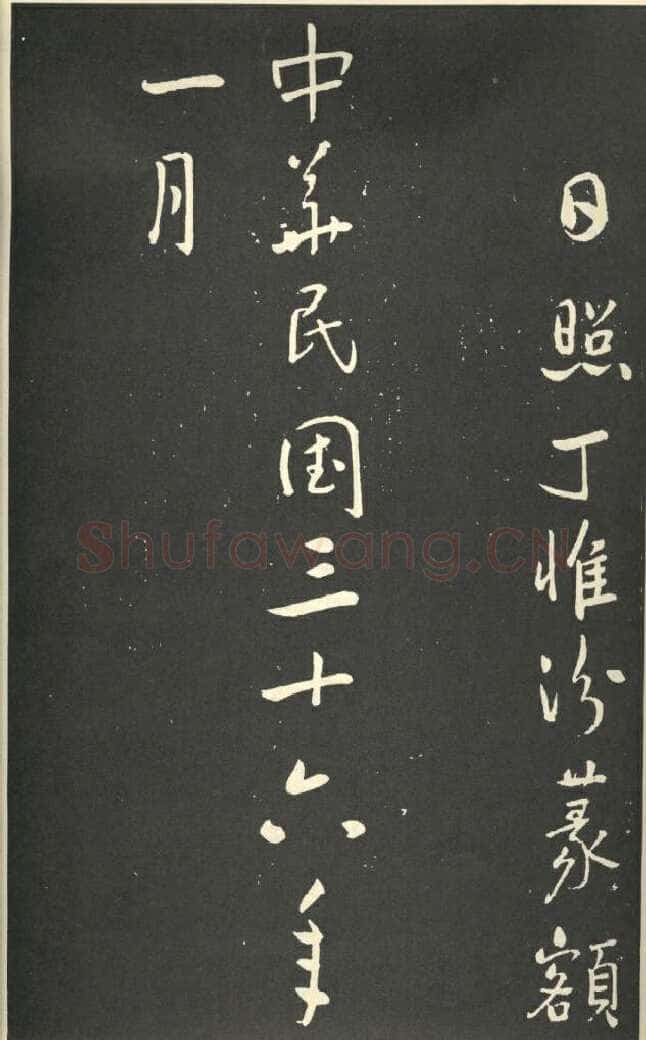 日照丁惟汾篆額
中華民国三十六年
一月
Shufawang.CN